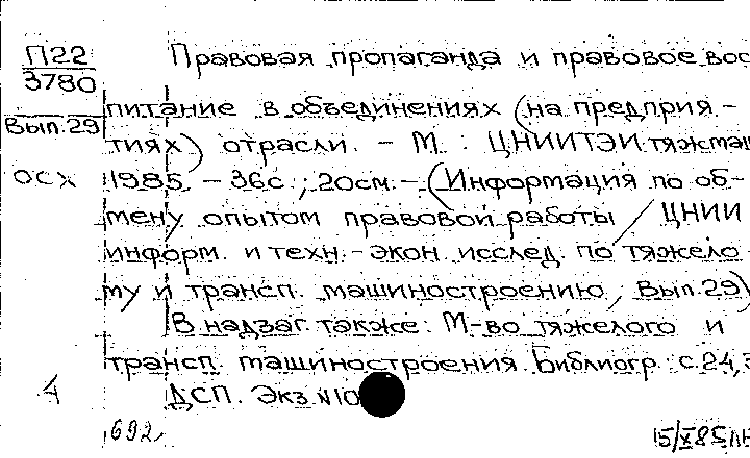 П22
3780
Вып.29
ОСХ
Правовая пропаганда и правовое вос
питание в объединениях (на предприя-
тиях) отрасли. - М. : ЦНИИТЭИтяжмаш
1985. - 36с.; 20см. - (Информация по об-
мену опытом правовой работы / ЦНИИ
информ. и техн.-экон. исслед. по тяжело-
му и трансп. машиностроению; Вып.29)
В надзаг. также: М-во тяжелого и
трансп. машиностроения. Библиогр.: с.24,3
ДСП. Экз. №10
4
692
15/X85